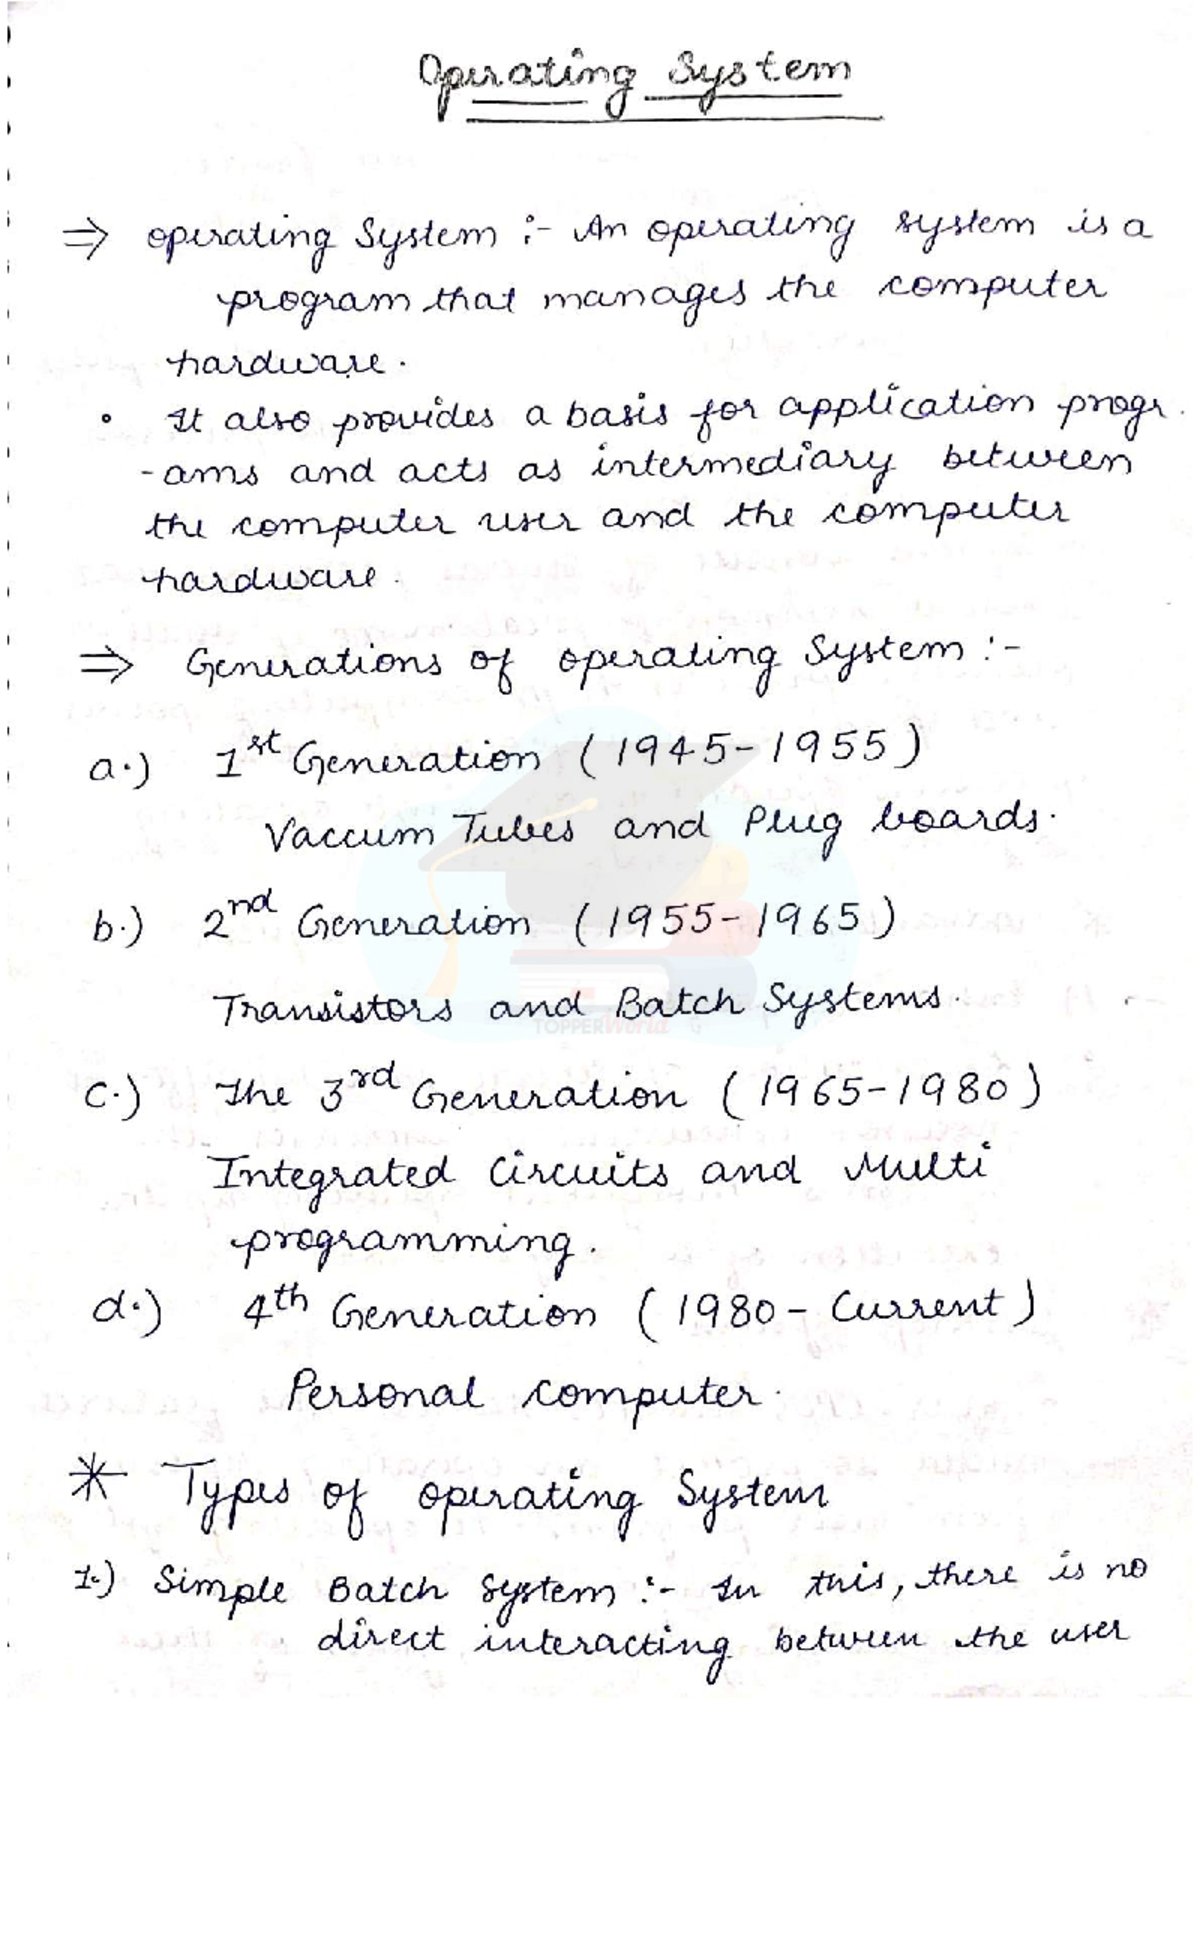 Operating System
⇒ operating System :- An operating system is a
program that manages the computer
hardware.
• It also provides a basis for application progr.
-ams and acts as intermediary between
the computer user and the computer
hardware.
⇒ Generations of operating System :-
a.) 1st Generation (1945-1955)
Vaccum Tubes and Plug boards.
b.) 2nd Generation (1955-1965)
Transistors and Batch Systems.
TOPPERWorld
c.) The 3rd Generation (1965-1980)
Integrated Circuits and Multi
programming.
d.) 4th Generation (1980- Current)
Personal computer.
* Types of operating System
1.) Simple Batch System :- In this, there is no
direct interacting between the user